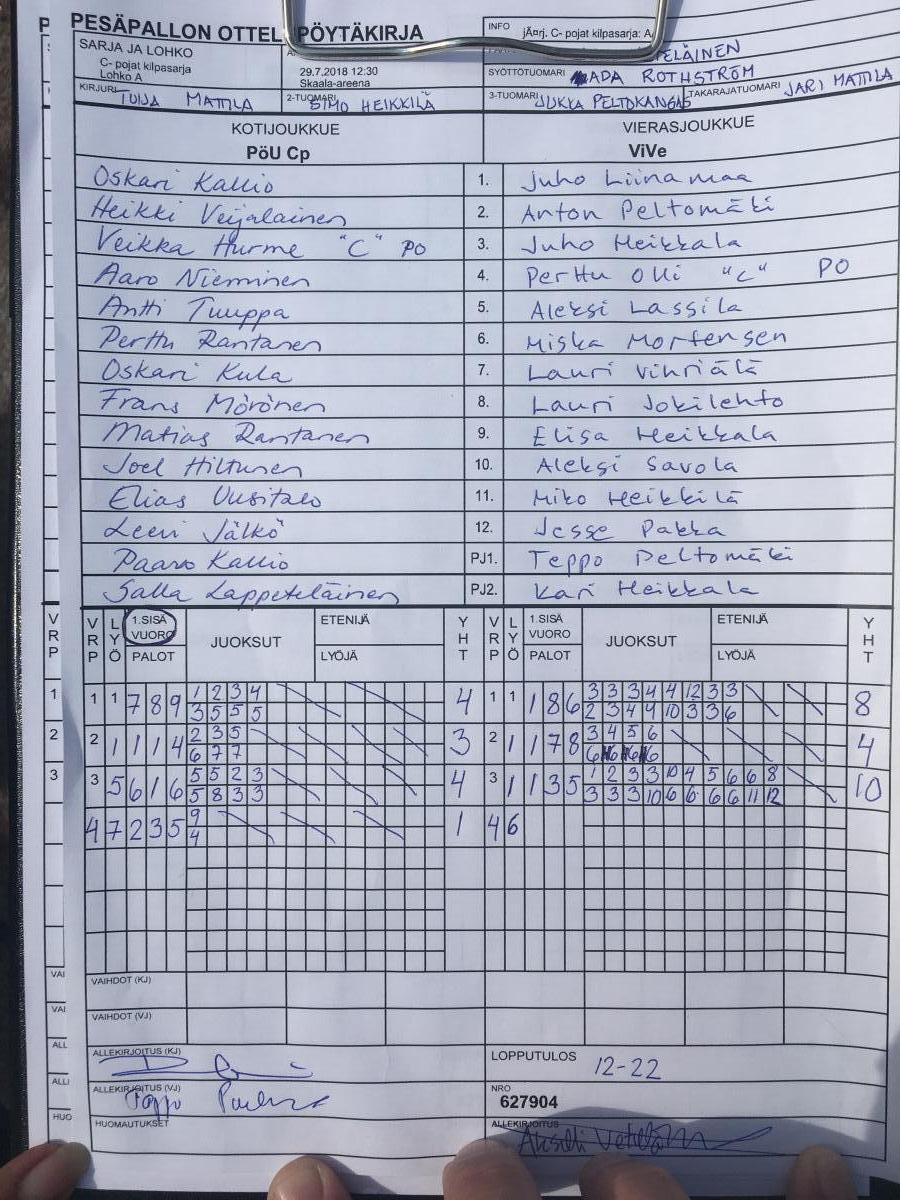 PESÄPALLON OTTEL PÖYTÄKIRJA
INFO
jÄ¤rj. C- pojat kilpasarja: A
SARJA JA LOHKO
C- pojat kilpasarja
Lohko A
29.7.2018 12:30
Skaala-areena
PELÄINEN
SYÖTTÖTUOMARI ADA ROTHSTRÖM
KIRJURI TUIJA MATTILA
2-TUOMARI SIMO HEIKKILÄ
3-TUOMARI JUKKA PELTOKANGAS
TAKARAJATUOMARI JARI MATTILA
KOTIJOUKKUE VIERASJOUKKUE
PöU Cp ViVe
Oskari Kallio 1. Juho Liinamaa
Heikki Veijalainen 2. Anton Peltomäki
Veikka Hurme "C" PO 3. Juho Heikkala
Aaro Nieminen 4. Perttu Olli "C" PO
Antti Tuuppa 5. Aleksi Lassila
Perttu Rantanen 6. Miska Mortensen
Oskari Kula 7. Lauri Vihriälä
Frans Mörönen 8. Lauri Jokilehto
Matias Rantanen 9. Elisa Heikkala
Joel Hiltunen 10. Aleksi Savola
Elias Uusitalo 11. Miko Heikkilä
Leevi Jälkö 12. Jesse Pakka
Paavo Kallio PJ1. Teppo Peltomäki
Salla Lappeteläinen PJ2. Kari Heikkala
VRP LYÖ 1.SISÄ VUORO PALOT JUOKSUT ETENIJÄ LYÖJÄ YHT VRP LYÖ 1.SISÄ VUORO PALOT JUOKSUT ETENIJÄ LYÖJÄ YHT
1 1 7 8 9 1 2 3 4 4 1 1 1 8 6 3 3 3 4 4 12 3 3 8
3 5 5 5 2 3 4 4 10 3 3 6
2 1 1 1 4 2 3 5 3 2 1 1 7 8 3 4 5 6 4
6 7 7 6 6 6 6
3 5 6 1 6 5 5 2 3 4 3 1 1 3 5 1 2 3 3 10 4 5 6 6 8 10
5 8 3 3 3 3 3 10 6 6 6 6 11 12
4 7 2 3 5 9 1 4 6
4
VAIHDOT (KJ)
VAIHDOT (VJ)
ALLEKIRJOITUS (KJ)
LOPPUTULOS
12-22
ALLEKIRJOITUS (VJ)
NRO
627904
HUOMAUTUKSET
ALLEKIRJOITUS